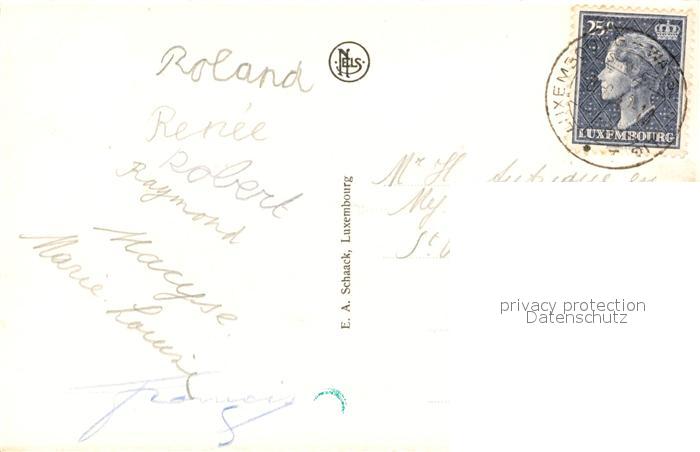 Roland
Renée
Robert
Raymond
Maryse
Marie Louise
Francis
NELS
E. A. Schaack, Luxembourg
25c
LUXEMBOURG
LUXEMBOURG
Mr H.
My
St
privacy protection
Datenschutz